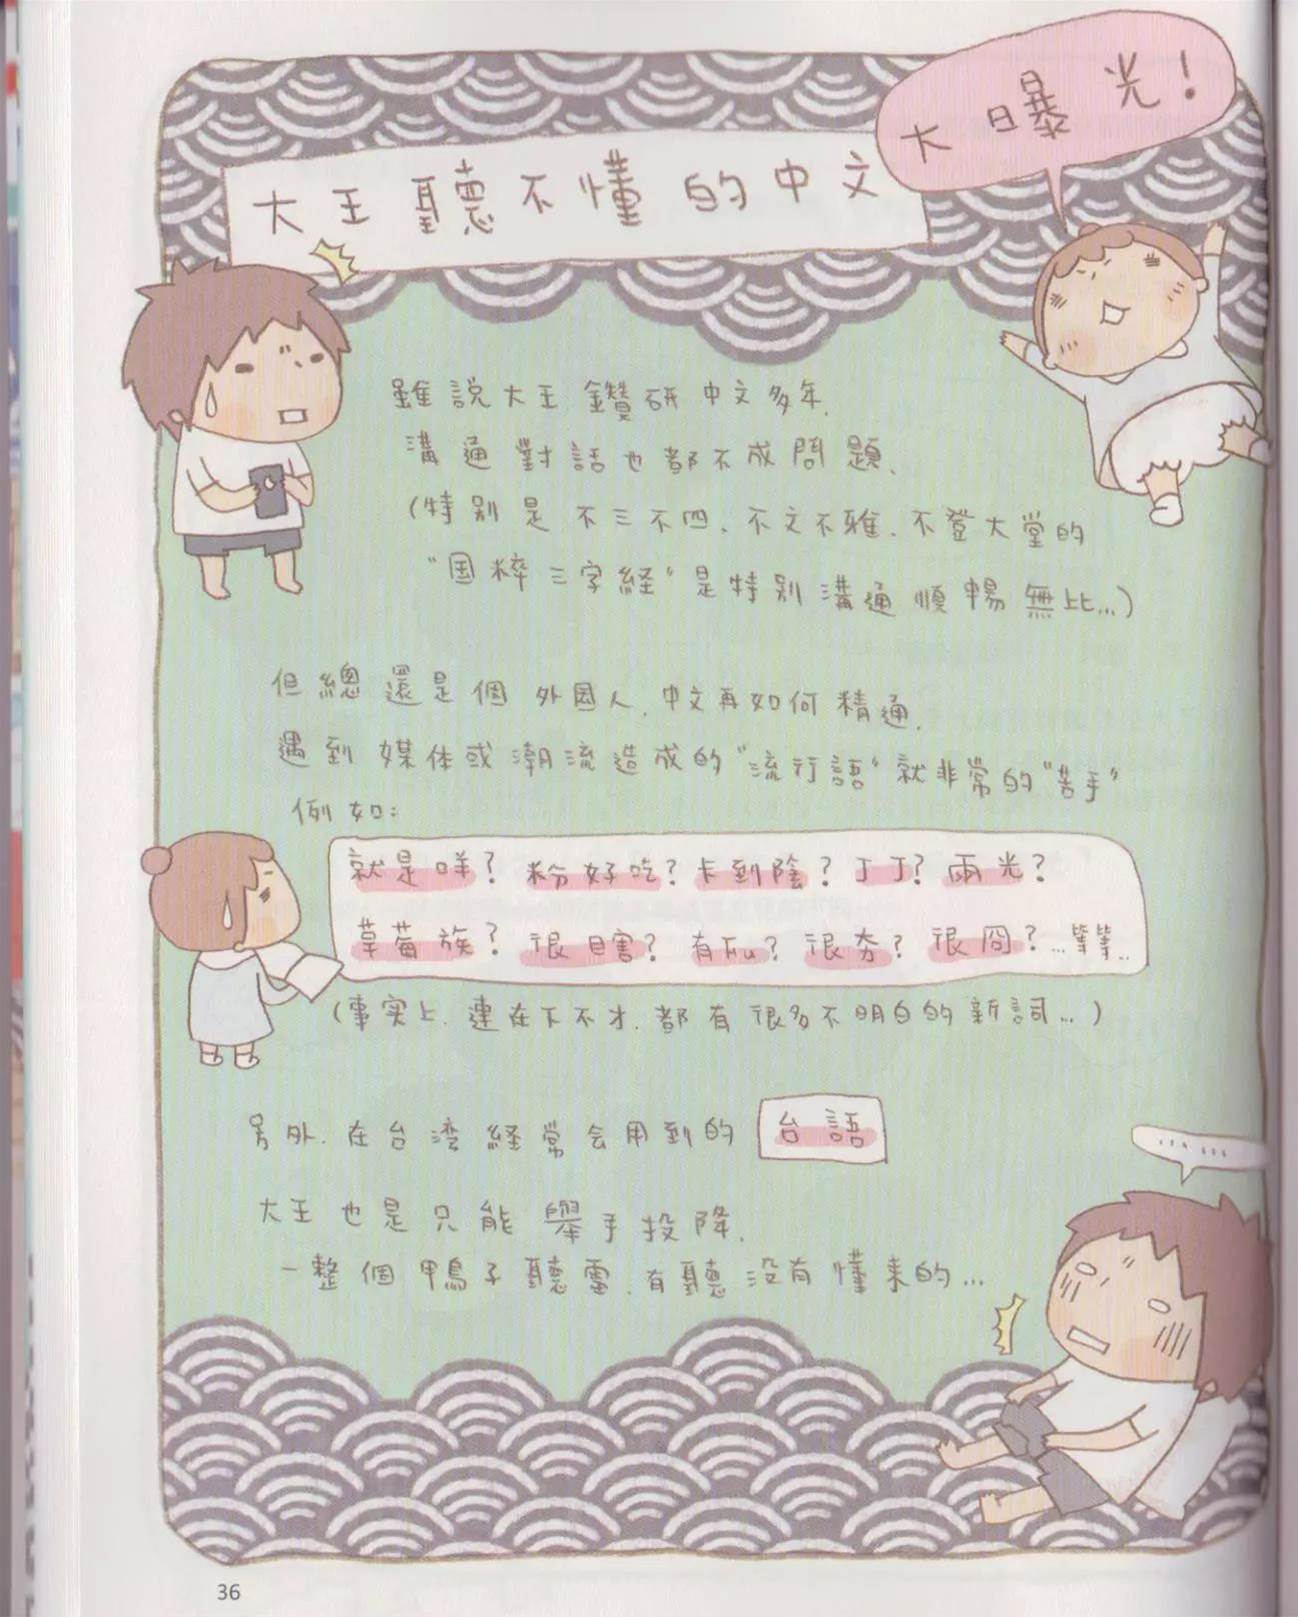 大王聽不懂的中文
大曝光!
雖說大王鑽研中文多年,
溝通對話也都不成問題,
(特別是不三不四、不文不雅、不登大堂的
"国粹三字経"是特別溝通順暢無比...)
但總還是個外国人,中文再如何精通,
遇到媒体或潮流造成的"流行語"就非常的"苦手"
例如:
就是咩? 粉好吃? 卡到陰? 丁丁? 雨光?
草莓族? 很日害? 有Fu? 很夯? 很冏? ...等等..
(事実上,連在下不才,都有很多不明白的新詞...)
另外,在台湾経常会用到的 台語
大王也是只能舉手投降,
一整個鴨子聽雷,有聽没有懂来的...
......
36